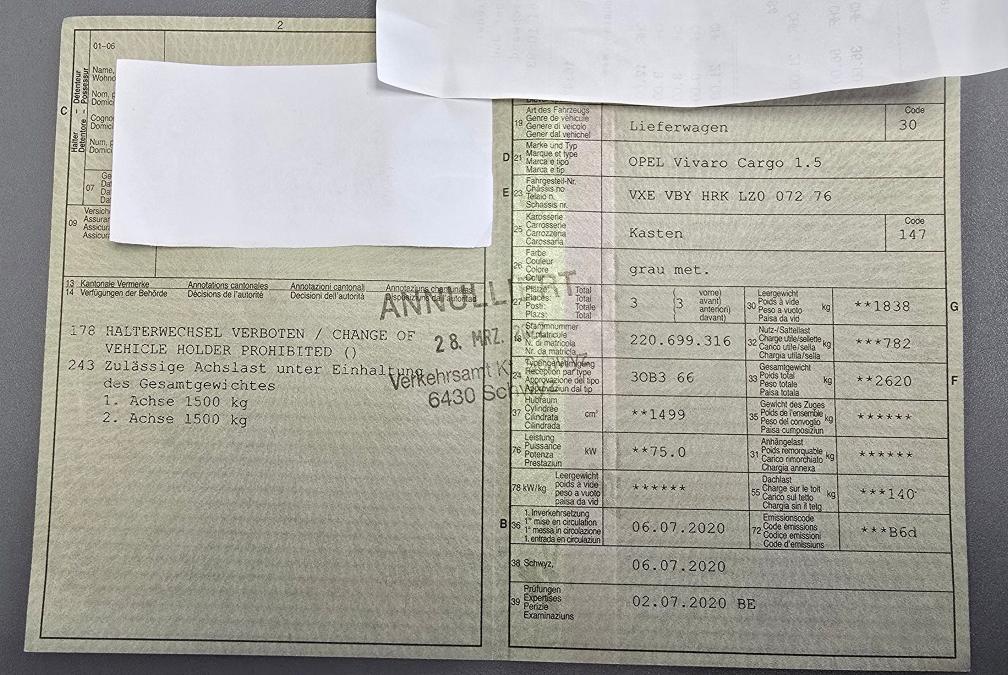 2
01-06
Name,
Wohno
Nom, p
Domic
Cogno
Domic
Num, p
Domic
C
Halter Détenteur
Detentore - Possessur
07
Ge
Dat
Dat
Dat
09
Versich
Assura
Assicur
Assicur
13 Kantonale Vermerke Annotations cantonales Annotazioni cantonali Annotaziuns chantunalas
14 Verfügungen der Behörde Décisions de l'autorité Decisioni dell'autorità Disposiziuns da l'autoritad
178 HALTERWECHSEL VERBOTEN / CHANGE OF
VEHICLE HOLDER PROHIBITED ()
243 Zulässige Achslast unter Einhaltung
des Gesamtgewichtes
1. Achse 1500 kg
2. Achse 1500 kg
ANNULLIERT
28. MRZ.
Verkehrsamt K Schwyz
6430 Schwyz
19
Art des Fahrzeugs
Genre de véhicule
Genere di veicolo
Gener dal vehichel
Lieferwagen
Code
30
D 21
Marke und Typ
Marque et type
Marca e tipo
Marca e tip
OPEL Vivaro Cargo 1.5
E 23
Fahrgestell-Nr.
Châssis no
Telaio n.
Schassis nr.
VXE VBY HRK LZ0 072 76
25
Karosserie
Carrosserie
Carrozzeria
Carossaria
Kasten
Code
147
26
Farbe
Couleur
Colore
Colur
grau met.
27
Plätze: Total
Places: Total
Posti: Totale
Plazs: Total
3 (3 vorne)
avant)
anteriori)
davant)
30
Leergewicht
Poids à vide
Peso a vuoto
Paisa da vid
kg
**1838
G
18
Stammnummer
N° matricule
N. di matricola
Nr. da matricla
220.699.316
32
Nutz-/Sattellast
Charge utile/sellette
Carico utile/sella
Chargia utila/sella
kg
***782
24
Typengenehmigung
Réception par type
Approvazione del tipo
Approvaziun dal tip
3OB3 66
33
Gesamtgewicht
Poids total
Peso totale
Paisa totala
kg
**2620
F
37
Hubraum
Cylindrée
Cilindrata
Cilindrada
cm³
**1499
35
Gewicht des Zuges
Poids de l'ensemble
Peso del convoglio
Paisa cumposiziun
kg
******
76
Leistung
Puissance
Potenza
Prestaziun
kW
**75.0
31
Anhängelast
Poids remorquable
Carico rimorchiato
Chargia annexa
kg
******
78 kW/kg
Leergewicht
poids à vide
peso a vuoto
paisa da vid
******
55
Dachlast
Charge sur le toit
Carico sul tetto
Chargia sin il tetg
kg
***140
B 36
1. Inverkehrsetzung
1re mise en circulation
1a messa in circolazione
1. entrada en circulaziun
06.07.2020
72
Emissionscode
Code émissions
Codice emissioni
Code d'emissiuns
***B6d
38 Schwyz, 06.07.2020
39
Prüfungen
Expertises
Perizie
Examinaziuns
02.07.2020 BE